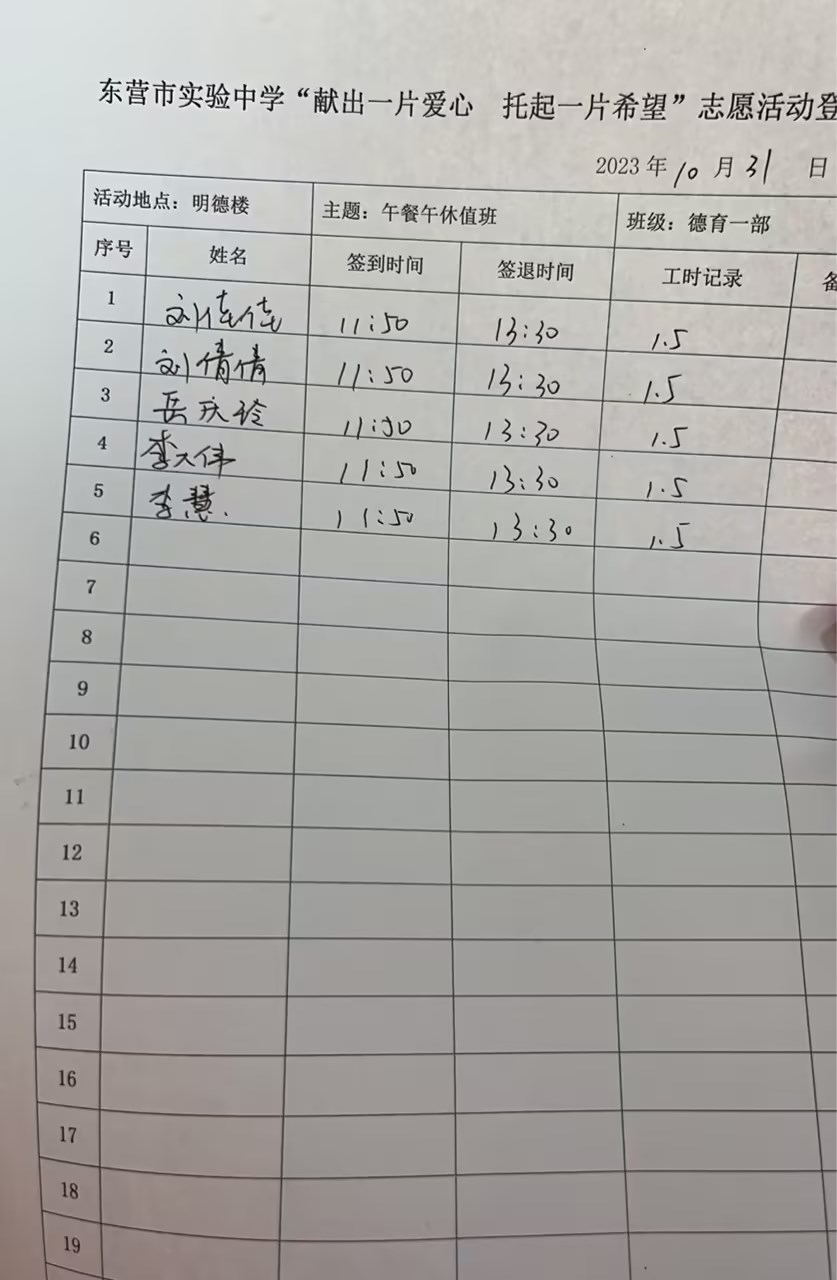 东营市实验中学“献出一片爱心 托起一片希望”志愿活动登
2023 年 10 月 31 日
活动地点：明德楼 主题：午餐午休值班 班级：德育一部
序号 姓名 签到时间 签退时间 工时记录 备
1 刘佳佳 11:50 13:30 1.5
2 刘倩倩 11:50 13:30 1.5
3 岳庆玲 11:50 13:30 1.5
4 李大伟 11:50 13:30 1.5
5 李慧 11:50 13:30 1.5
6
7
8
9
10
11
12
13
14
15
16
17
18
19